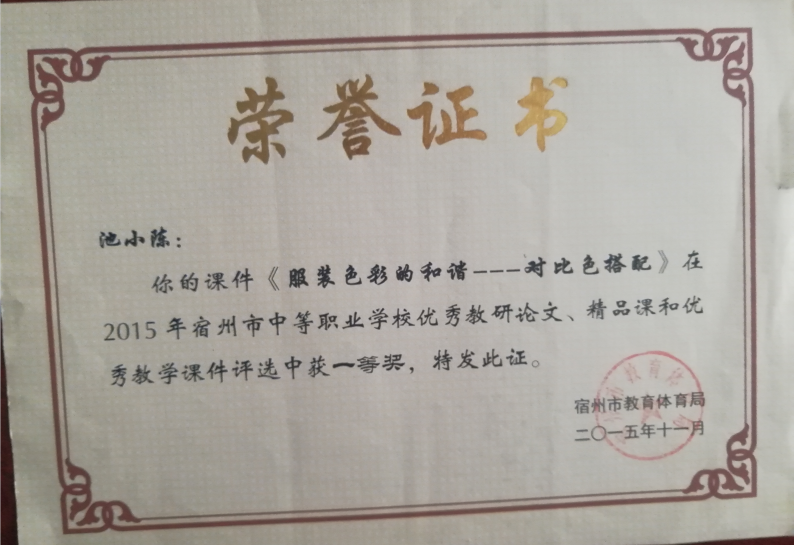 荣誉证书
池小陈：
你的课件《服装色彩的和谐---对比色搭配》在
2015年宿州市中等职业学校优秀教研论文、精品课和优
秀教学课件评选中获一等奖，特发此证。
宿州市教育体育局
二〇一五年十一月